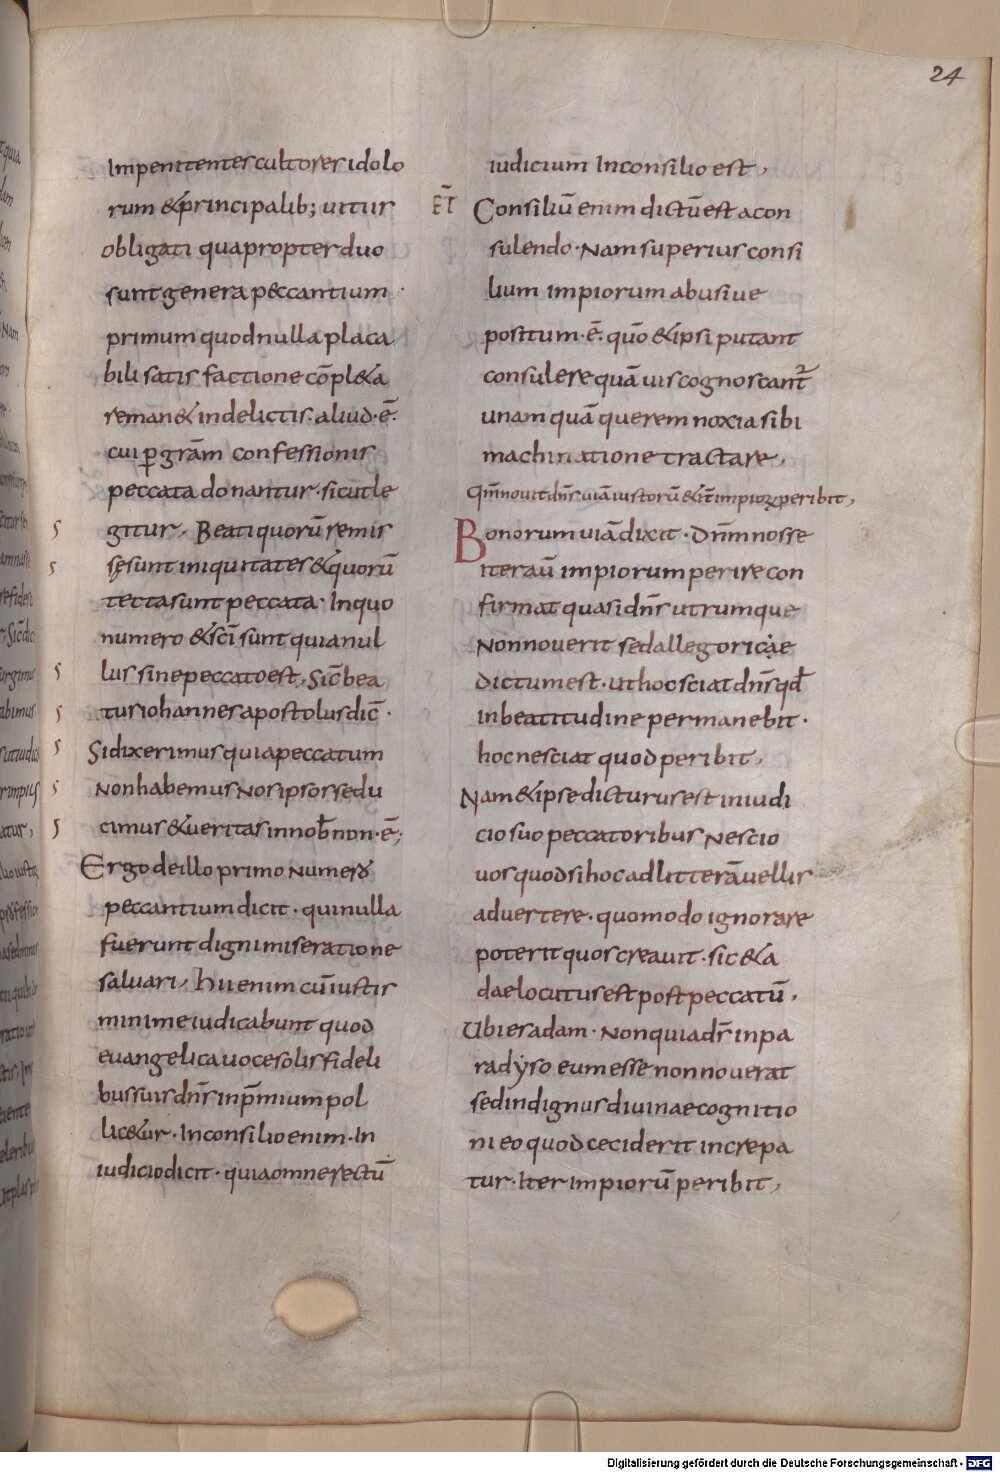 24
Impenitentes cultores idolo
rum & principalib; uitiis
obligati quapropter duo
sunt genera peccantium ·
primum quod nulla placa
bili satisfactione cōpl&a
reman& in delictis · aliud · ē ·
cui ꝑ grām confessionis
peccata donantur · sicut le
gitur, Beati quorū remis
sę sunt iniquitates & quorū
tecta sunt peccata · In quo
numero & sc̄i sunt quia nul
lus sine peccato est, Sic̄ bea
tus iohannes apostolus dic̄ ·
Si dixerimus quia peccatum
Non habemus Nos ipsos sedu
cimus & ueritas in nob̄ non · ē;
Ergo de illo primo Numero
peccantium dicit · qui nulla
fuerunt digni miseratione
saluari, hii enim cū iustis
minime iudicabunt quod
euangelica uoce solis fideli
bus suis dn̄s in p̄mium pol
lic&ur · In consilio enim · In
iudicio dicit · quia omne rectū
iudicium In consilio est,
ET̄ Consiliū enim dictū est a con
sulendo · Nam superius consi
lium impiorum abusiue
positum · ē · quō & ipsi putant
consulere quā uis cognoscant̄
unam quā que rem noxia sibi
machinatione tractare,
Qm̄ nouit dn̄s uiā iustorū & it̄ impioꝝ peribit,
Bonorum uiā dixit · Dn̄m nosse
iter aū impiorum perire con
firmat quasi dn̄s utrumque
Non nouerit sed allegoricae
dictum est · ut hoc sciat dn̄s qd̄
in beatitudine permanebit ·
hoc nesciat quod peribit,
Nam & ipse dicturus est in iudi
cio suo peccatoribus Nescio
uos quod si hoc ad litterā uellis
aduertere · quomodo ignorare
poterit quos creauit · sic & a
dae locutus est post peccatū ·
Ubi es adam · Non quia dn̄s in pa
radẏso eum esse non nouerat
sed indignus diuinae cognitio
ni eo quod ceciderit increpa
tur · Iter Impiorū peribit,
Digitalisierung gefördert durch die Deutsche Forschungsgemeinschaft - DFG